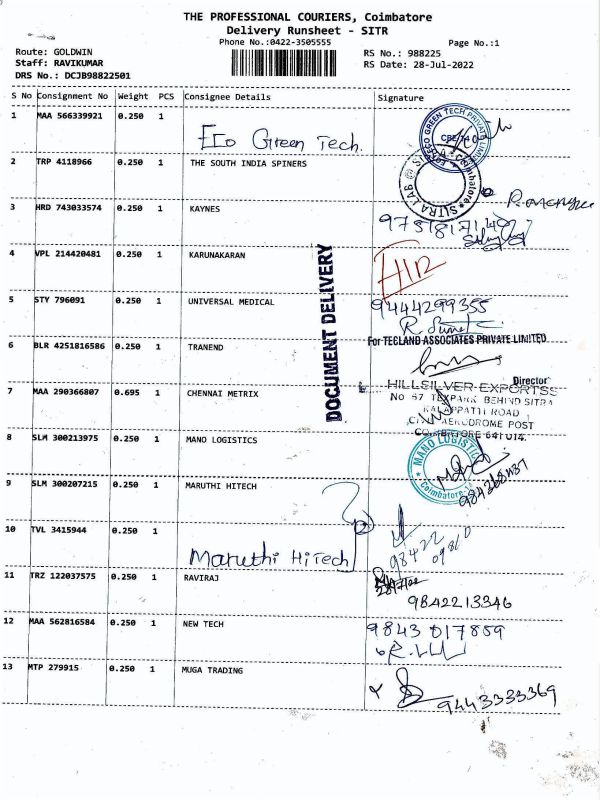 THE PROFESSIONAL COURIERS, Coimbatore
Delivery Runsheet - SITR
Phone No.:0422-3505555
Page No.:1
Route: GOLDWIN
RS No.: 988225
Staff: RAVIKUMAR
RS Date: 28-Jul-2022
DRS No.: DCJB98822501
S No Consignment No Weight PCS Consignee Details Signature
1 MAA 566339921 0.250 1 Eco Green Tech.
2 TRP 4118966 0.250 1 THE SOUTH INDIA SPINERS
SITRA Coimbatore
3 HRD 743033574 0.250 1 KAYNES
4 VPL 214420481 0.250 1 KARUNAKARAN
DOCUMENT DELIVERY
5 STY 796091 0.250 1 UNIVERSAL MEDICAL 9444299355
6 BLR 4251816586 0.250 1 TRANEND For TECLAND ASSOCIATES PRIVATE LIMITED
Director
7 MAA 290366807 0.695 1 CHENNAI METRIX HILLSILVER EXPORTSS
No 67 TEXPARK BEHIND SITRA
KALAPPATTI ROAD
CIVIL AERODROME POST
COIMBATORE 641 014.
8 SLM 300213975 0.250 1 MANO LOGISTICS MANO LOGISTICS
Coimbatore
9 SLM 300207215 0.250 1 MARUTHI HITECH
10 TVL 3415944 0.250 1 Maruthi HiTech 98422
11 TRZ 122037575 0.250 1 RAVIRAJ 9842213346
12 MAA 562816584 0.250 1 NEW TECH 9843 017859
13 MTP 279915 0.250 1 MUGA TRADING 9443333369